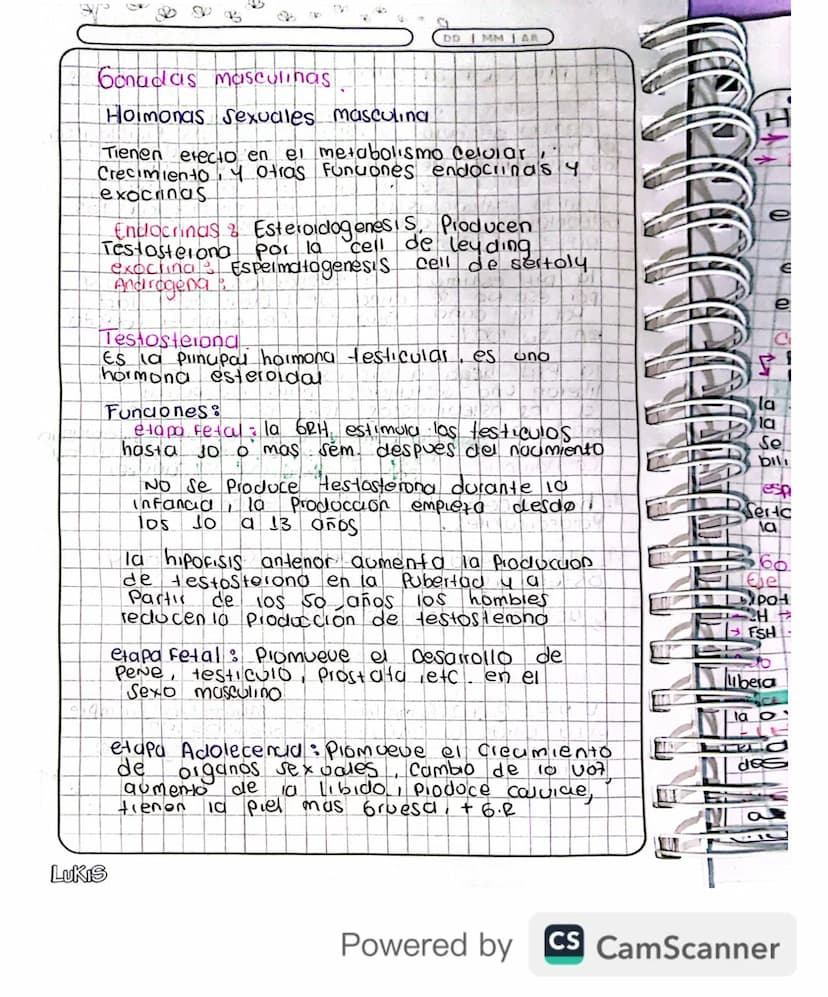 DD | MM | AA
Gonadas masculinas.
Hormonas sexuales masculina
Tienen efecto en el metabolismo celular,
Crecimiento, y otras funciones endocrinas y
exocrinas
Endocrinas: Esteroidogenesis, Producen
Testosterona por la cell de leyding
exocrina: Espermatogenesis cell de sertoly
Androgena:
Testosterona
Es la principal hormona testicular, es una
hormona esteroidal
Funciones:
etapa fetal: la GRH, estimula los testiculos
hasta 10 o mas sem. despues del nacimiento
No se Produce testosterona durante la
infancia, la Producción empieza desde
los 10 a 13 años
la hipofisis anterior aumenta la Produccion
de testosterona en la Pubertad y a
Partir de los 50 años los hombres
reducen la Producción de testosterona
etapa Fetal: Promueve el Desarrollo de
Pene, testiculo, Prostata, etc. en el
Sexo masculino
etapa Adolecencia: Promueve el Crecimiento
de organos sexuales, Cambio de la voz,
aumento de la libido, produce calvicie,
tienen la piel mas gruesa, + G.R
LUKIS
H
e
e
e
la
la
se
bili
esp
Serto
la
Go
Eje
FSH
libera
la
des
a
Powered by CS CamScanner